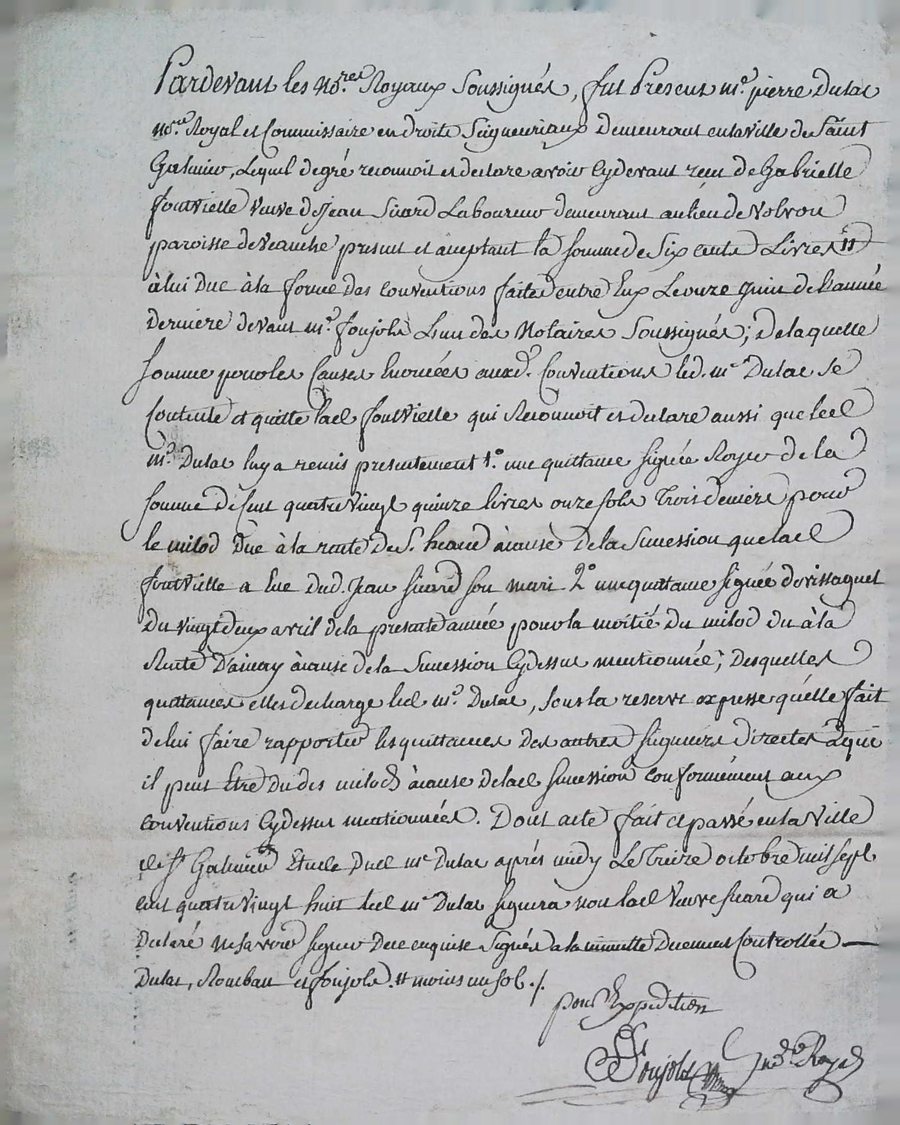 Pardevant les No.res Royaux Soussignés, fut Present m.e pierre Dulac
no.re Royal et Commissaire en droits Seigneuriaux demeurant en la ville de Saint
Galmier, Lequel de gré reconnoit et declare avoir cydevant reçu de Gabrielle
fontvielle veuve de Jean Sicard Laboureur demeurant au lieu de Volvon
paroisse de veauche present et aceptant la somme de Six cents Livres
à lui Due à la forme des conventions faites entre Eux Le onze juin de l'année
Derniere devant m.e foujols L'un des Notaires Soussignés; de laquelle
somme pour les Causes Enoncées auxd. Conventions led. m.e Dulac se
Contente et quitte lad fontvielle qui Reconnoit et declare aussi que led
m.e Dulac luy a remis presentement 1.o une quittance signée Royer de la
somme de Cent quatre vingt quinze livres onze sols Trois deniers pour
le milod Dûe à la rente de S. heand à cause de la Succession que lad
fontvielle a Eue dud. Jean Sicard son mari 2.o une quittance signée dorissaguet
Du vingt deux avril de la presente année pour la moitié du milod du à la
Rente D'ainay à cause de la Succession Cydessus mentionnée; Desquelles
quittances elle decharge led m.e Dulac, sous la reserve expresse qu'elle fait
de lui faire rapporter les quittances des autres seigneurs directes à qui
il peut Etre du des milods à cause de lad succession conformement aux
conventions Cydessus mentionnées. Dont acte fait et passé en la ville
de S.t Galmier Etude dud m.e Dulac après midy Le Treize octobre mil sept
cent quatre vingt huit led m.e Dulac signera non lad Veuve Sicard qui a
Declaré ne savoir signer De ce enquise signés a la minutte Duement Controllée
Dulac, Rombau et foujols. moins un sol ./.
pour Expedition
Foujols No.re Royal